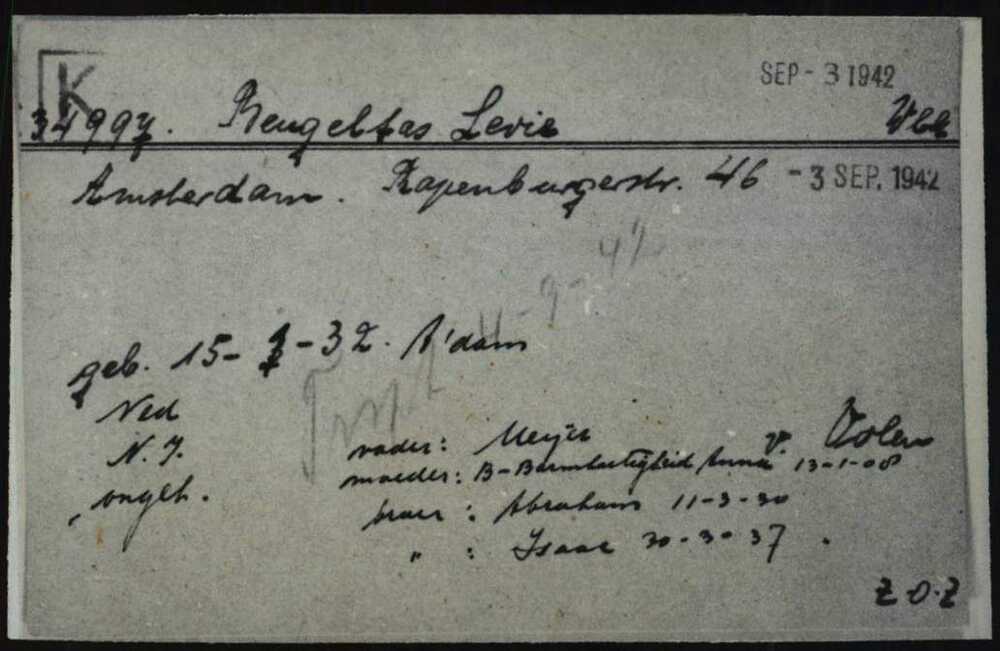 K
SEP - 3 1942
34997. Beugeltas Levie Vbl
Amsterdam. Rapenburgerstr. 46 - 3 SEP. 1942
geb. 15- -32. A'dam
Ned
N.I.
ongeh.
vader: Meijer v. Polen
moeder: B-Barmhartigheid Anna 13-1-08
broer: Abraham 11-3-30
" : Isaac 30-3-37
Z.O.Z